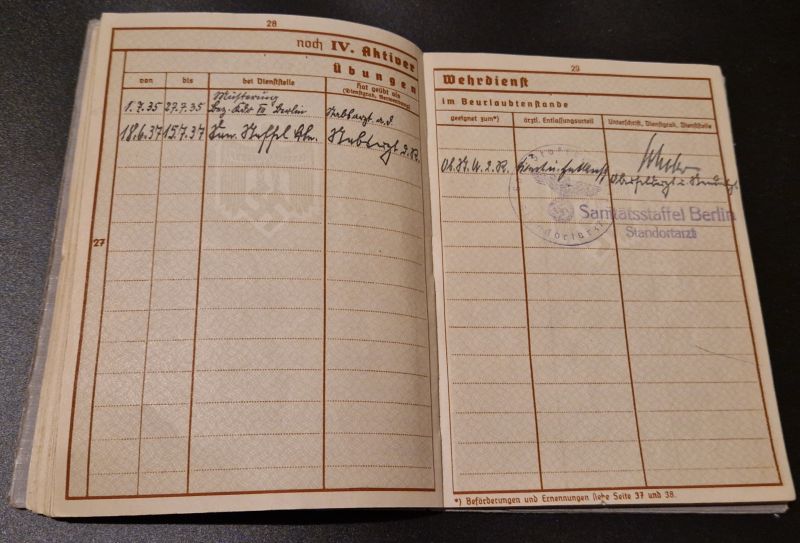 28
noch IV. Aktiver
Übungen
von bis bei Dienststelle Hat geübt als
(Dienstgrad, Verwendung)
Musterung
1.7.35 27.7.35 Bez. Kdo Berlin Stabsarzt a.d.
18.6.37 15.7.37 San. Staffel Bln. Stabsarzt d.R.
27
29
Wehrdienst
im Beurlaubtenstande
geeignet zum*) ärztl. Entlassungsurteil Unterschrift, Dienstgrad, Dienststelle
Ob. St. A. d. R.
Oberstarzt u.
Sanitätsstaffel Berlin
Standortarzt
*) Beförderungen und Ernennungen siehe Seite 37 und 38.